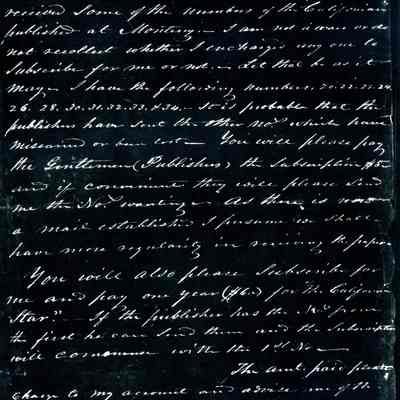 received some of the numbers of the Californian
published at Monterey - I am not aware or do
not recollect whether I in charged any one to
subscribe for me or not. - Let that be as it
may - I have the following numbers, 20. 21. 22. 24.
26. 28. 30. 31. 32. 33. & 34. - It is probable that the
publishers have sent the other nos. which have
miscarried or been lost - You will please pay
the Gentlemen (Publishers) the subscription $5
and if convenient they will please send
me the Nos. wanting - As there is now
a mail established I presume we shall
have more regularity in receiving the papers
You will also please subscribe for
me and pay one year ($6.) for the California
Star" - If the publisher has the Nos. from
the first he can send them and the subscription
will commence with the 1st No -
The amt. paid please
charge to my account and advise me of the